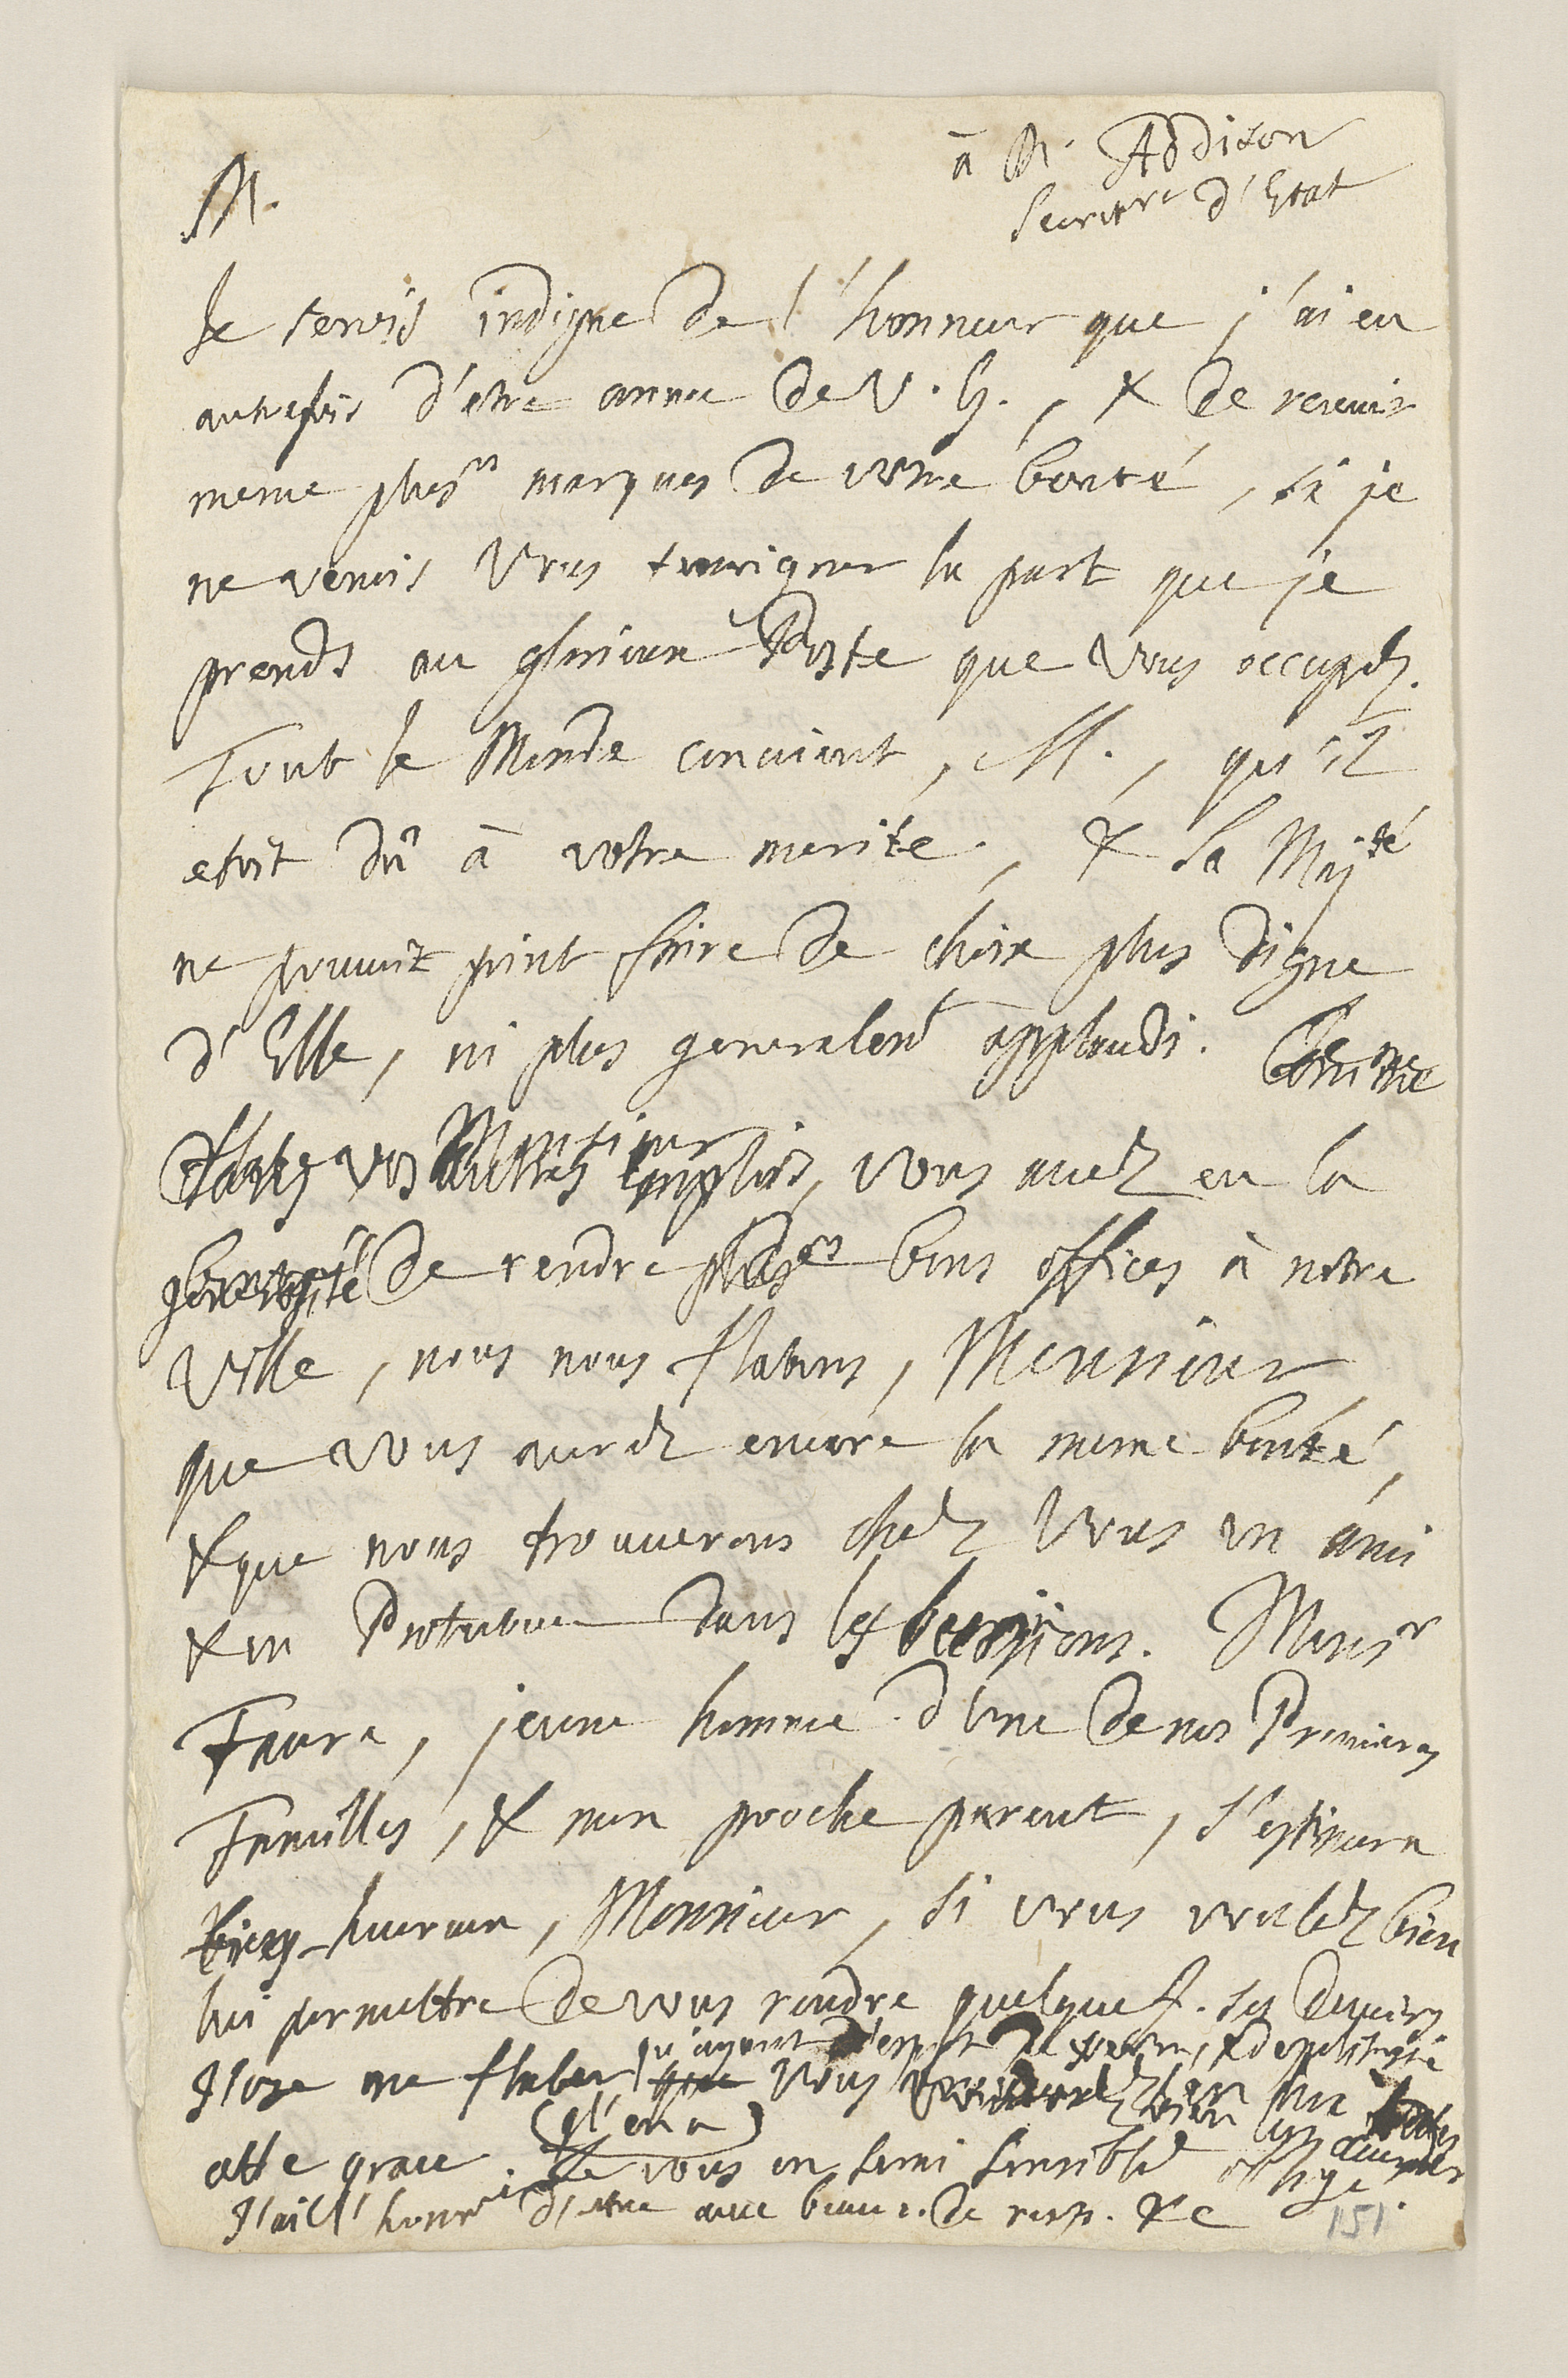 à M. Addison
Secretre d'Etat
M.
Je serois indigne de l'honneur que j'ai eu
autrefois d'etre connu de V. E., & de recevoir
meme plusrs marques de votre bonté, si je
ne venois Vous temoigner la part que je
prends au glorieux Poste que Vous occupez.
Tout le Monde convient, M., qu'il
etoit dû à votre merite, & Sa Majté
ne pouvoit point faire de choix plus digne
d'Elle, ni plus generalemt applaudi. Comme
Monsieur
vos emplois, vous avez eu la
de rendre plusrs bons offices à notre
Ville, nous nous flatons, Monsieur
que vous aurez encore la meme bonté,
& que nous trouverons chez Vous un ami
& un Protecteur dans les occasions. Monsr
Favre, jeune homme d'une de nos Premieres
Familles, & mon proche parent, s'estimera
heureux, Monsieur, si vous voulez bien
lui permettre de vous rendre quelque f. ses devoirs
qu'ayant d'esprit & de politesse
J'ose me flater que Vous bien lui
cette grace. (qu'il en a) Je vous en serai sensiblt obligé.
J'ai l'honr d'etre avec beauc. de resp. &c
151